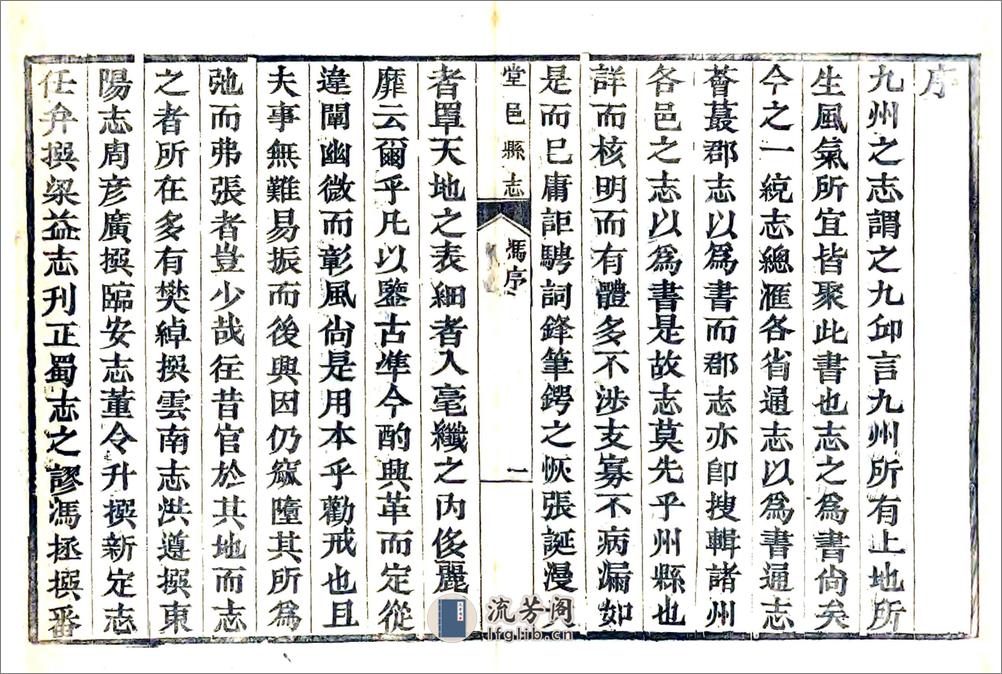 序
九州之志謂之九丘言九州所有土地所
生風氣所宜皆聚此書也志之為書尚矣
今之一統志總滙各省通志以為書通志
薈蕞郡志以為書而郡志亦卽搜輯諸州
各邑之志以為書是故志莫先乎州縣也
詳而核明而有體多不涉支寡不病漏如
是而已庸詎騁詞鋒筆鍔之恢張誕漫
堂邑縣志
馮序
一
者罩天地之表細者入毫纖之内侈麗
靡云爾乎凡以鑒古準今酌興革而定從
違闡幽微而彰風尚是用本乎勸戒也且
夫事無難易振而後興因仍窳墮其所為
弛而弗張者豈少哉往昔官於其地而志
之者所在多有樊綽撰雲南志洪遵撰東
陽志周彥廣撰臨安志董令升撰新定志
任弁撰梁益志刊正蜀志之謬馮拯撰番
流芳阁
lfglib.cn